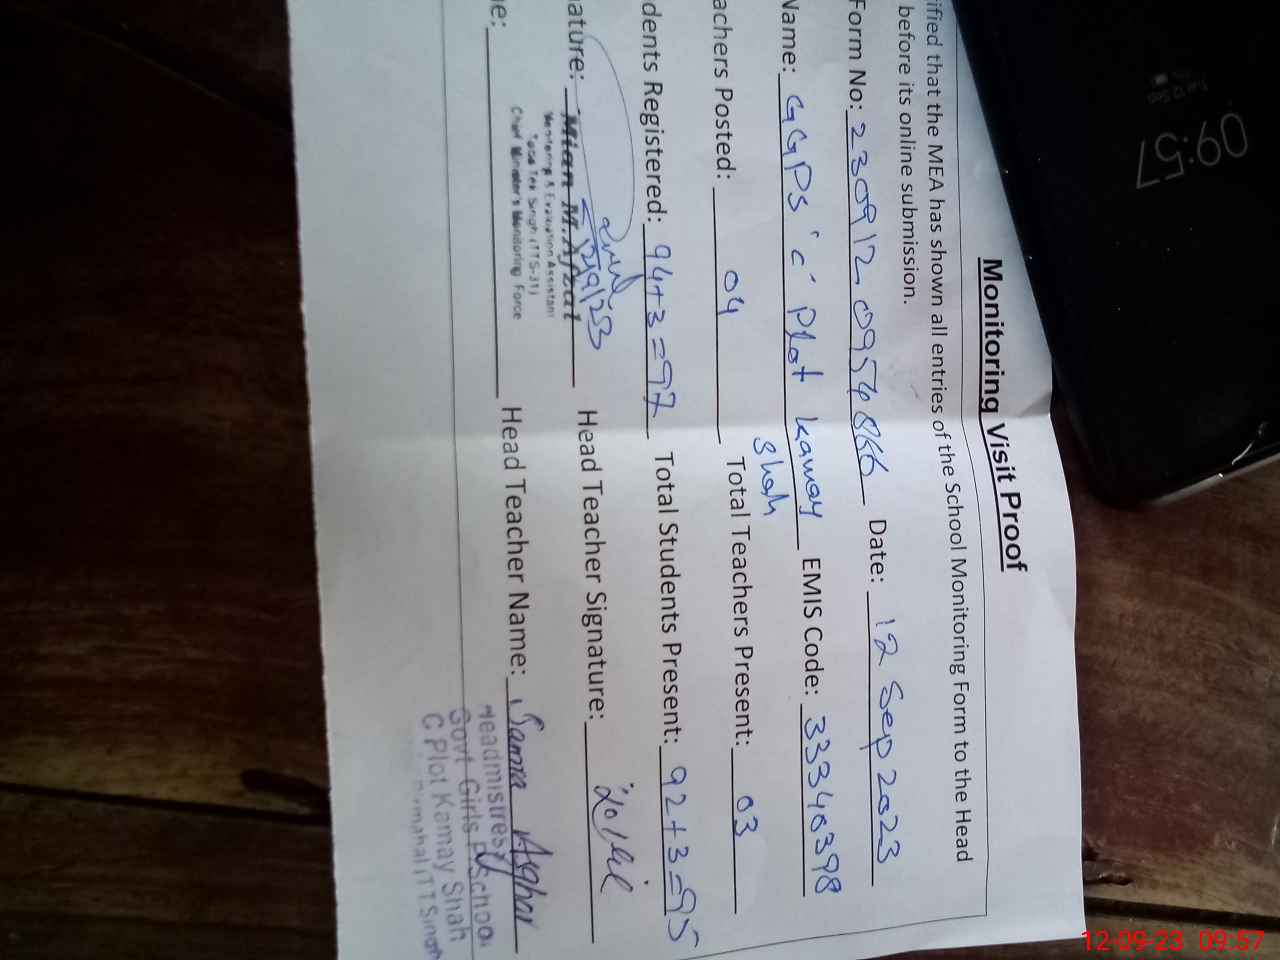 Monitoring Visit Proof
ified that the MEA has shown all entries of the School Monitoring Form to the Head
before its online submission.
Form No: 230912-0954866 Date: 12 Sep 2023
Name: GGPS 'C' Plot Kamay Shah EMIS Code: 33340398
achers Posted: 04 Total Teachers Present: 03
dents Registered: 94+3=97 Total Students Present: 92+3=95
ature: Head Teacher Signature:
Mian M.Afzal
Monitoring & Evaluation Assistant
Toba Tek Singh (TTS-31)
Chief Minister's Monitoring Force
e: Head Teacher Name: Samra Asghar
Headmistress
Govt Girls P/School
C Plot Kamay Shah
09:57
Tue 12 Sep
12-09-23 09:57